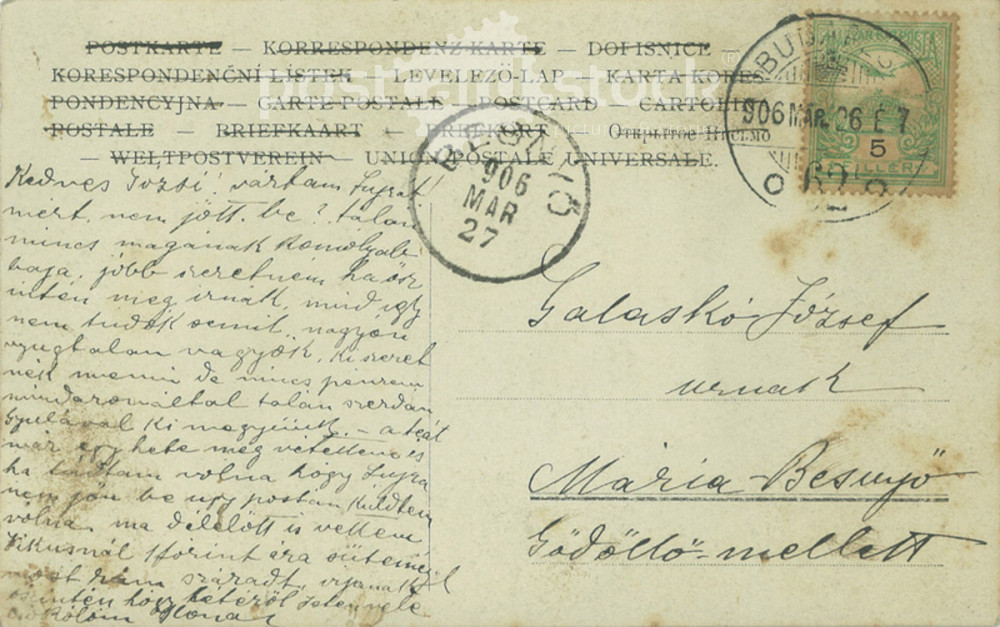 POSTKARTE — KORRESPONDENZ-KARTE — DOPISNICE —
KORESPONDENČNÍ LÍSTEK — LEVELEZŐ-LAP — KARTA KORES-
PONDENCYJNA — CARTE POSTALE — POSTCARD — CARTOLINA
POSTALE — BRIEFKAART — BREFKORT — Открытое Письмо
— WELTPOSTVEREIN — UNION POSTALE UNIVERSALE.
MAGYAR KIR. POSTA
5
FILLÉR
BUDAPEST
906 MÁR. 26 E 7
62
BESNYŐ
906
MÁR
27
Kedves Józsi! vártam Lujzát
miért nem jött be? talán
nincs magának komolyabb
baja, jobb szeretném ha ősz
intén meg írnák, mind így
nem tudok semit, nagyon
nyugtalan vagyok. Ki szeret
nék menni de nincs pénzem
mindazonáltal talán szerdán
Gyulával ki megyünk. — a teát
már egy hete meg vétettem és
ha tudtam volna hogy Lujza
nem jön be úgy postán küldtem
volna. ma délelőtt is vettem
1 forint ára sütemé
hogy
Ilona
Galaskó József
urnak
Mária-Besnyő
Gödöllő-mellett